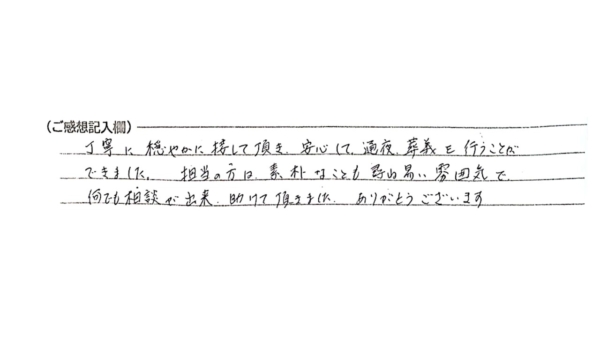 (ご感想記入欄)
丁寧に穏やかに接して頂き、安心して、通夜、葬義を行うことが
できました。 担当の方は、素朴なことも 易い雰囲気で、
何でも相談が出来、助けて頂きました。 ありがとうございます